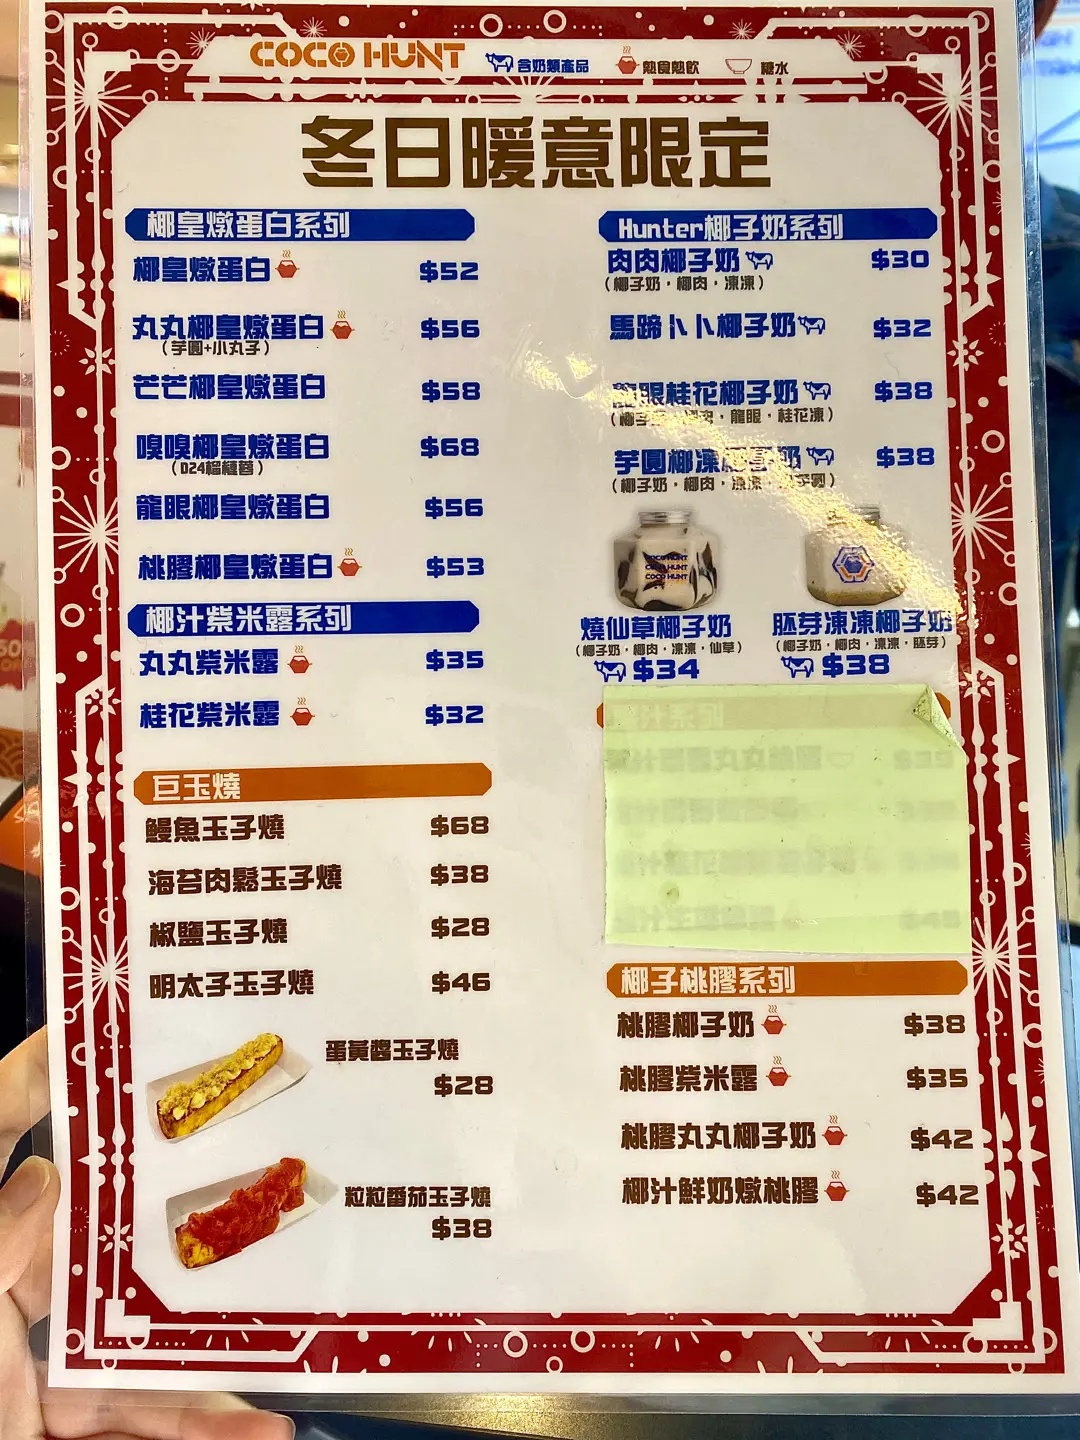 COCO HUNT 含奶類產品 熱食熱飲 糖水
冬日暖意限定
椰皇燉蛋白系列
椰皇燉蛋白 $52
丸丸椰皇燉蛋白 $56
(芋圓+小丸子)
芒芒椰皇燉蛋白 $58
嗅嗅椰皇燉蛋白 $68
(D24榴槤蓉)
龍眼椰皇燉蛋白 $56
桃膠椰皇燉蛋白 $53
椰汁紫米露系列
丸丸紫米露 $35
桂花紫米露 $32
巨玉燒
鰻魚玉子燒 $68
海苔肉鬆玉子燒 $38
椒鹽玉子燒 $28
明太子玉子燒 $46
蛋黃醬玉子燒
$28
粒粒番茄玉子燒
$38
Hunter椰子奶系列
肉肉椰子奶 $30
(椰子奶・椰肉・凍凍)
馬蹄卜卜椰子奶 $32
龍眼桂花椰子奶 $38
(椰子奶・椰肉・龍眼・桂花凍)
芋圓椰凍椰子奶 $38
(椰子奶・椰肉・凍凍・芋圓)
COCO HUNT
COCO HUNT
COCO HUNT
燒仙草椰子奶
(椰子奶・椰肉・凍凍・仙草)
$34
胚芽凍凍椰子奶
(椰子奶・椰肉・凍凍・胚芽)
$38
椰子桃膠系列
桃膠椰子奶 $38
桃膠紫米露 $35
桃膠丸丸椰子奶 $42
椰汁鮮奶燉桃膠 $42